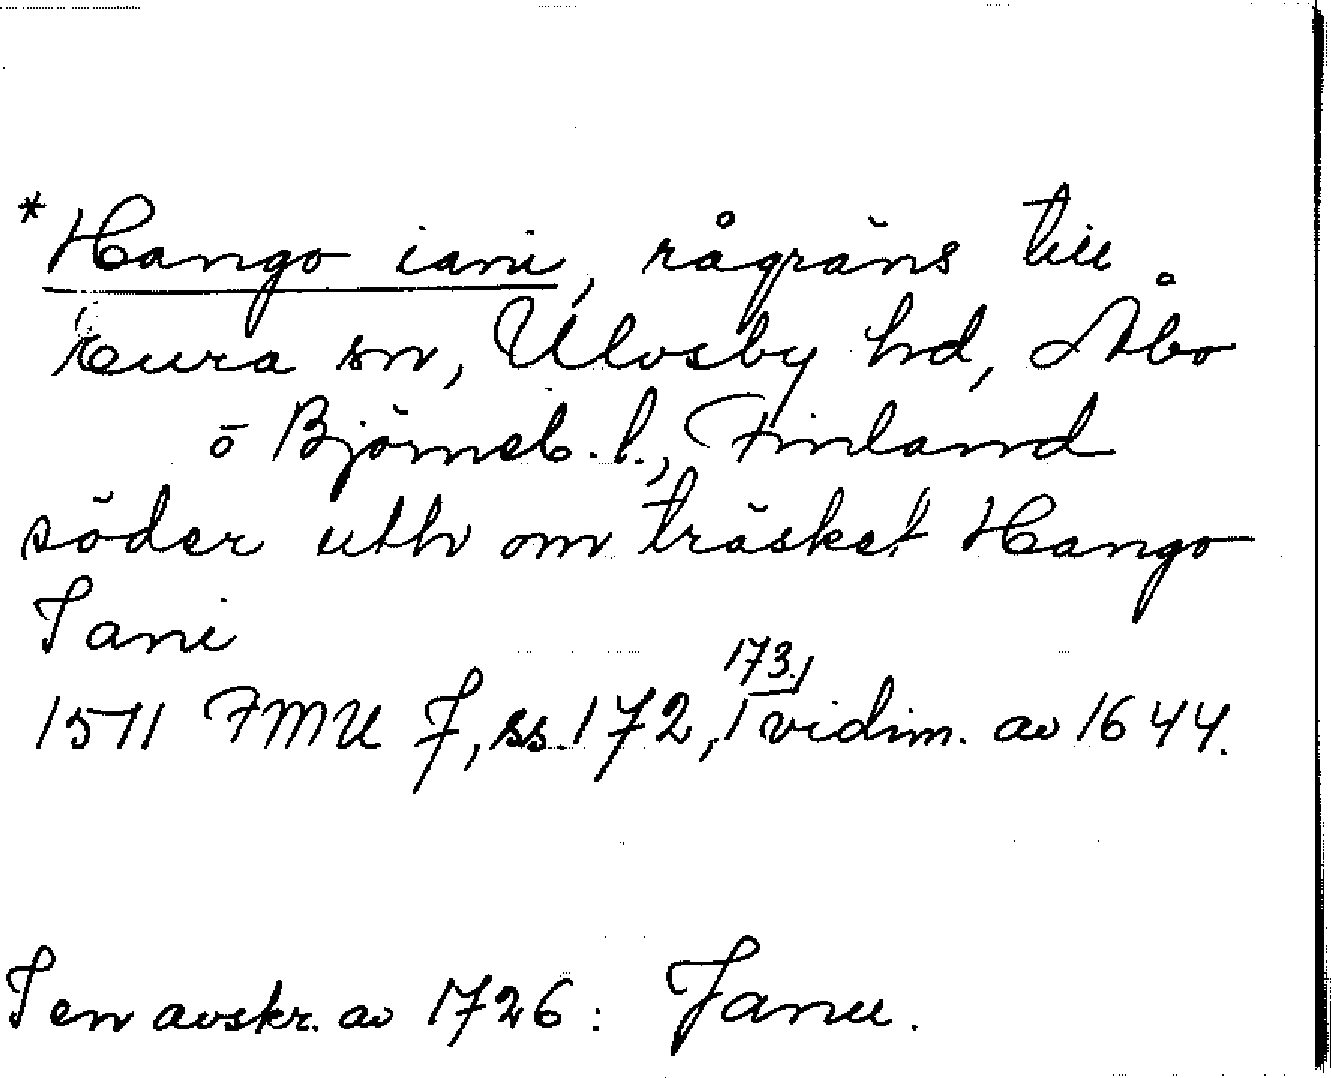 *Hango iani, rågräns till
Eura sn, Ulvsby hd, Åbo
o Björneb. l., Finland
söder uth om träsket Hango
Iani
1511 FMU 7, ss. 172, 173.
vidim. av 1644.
I en avskr. av 1726: Janu.